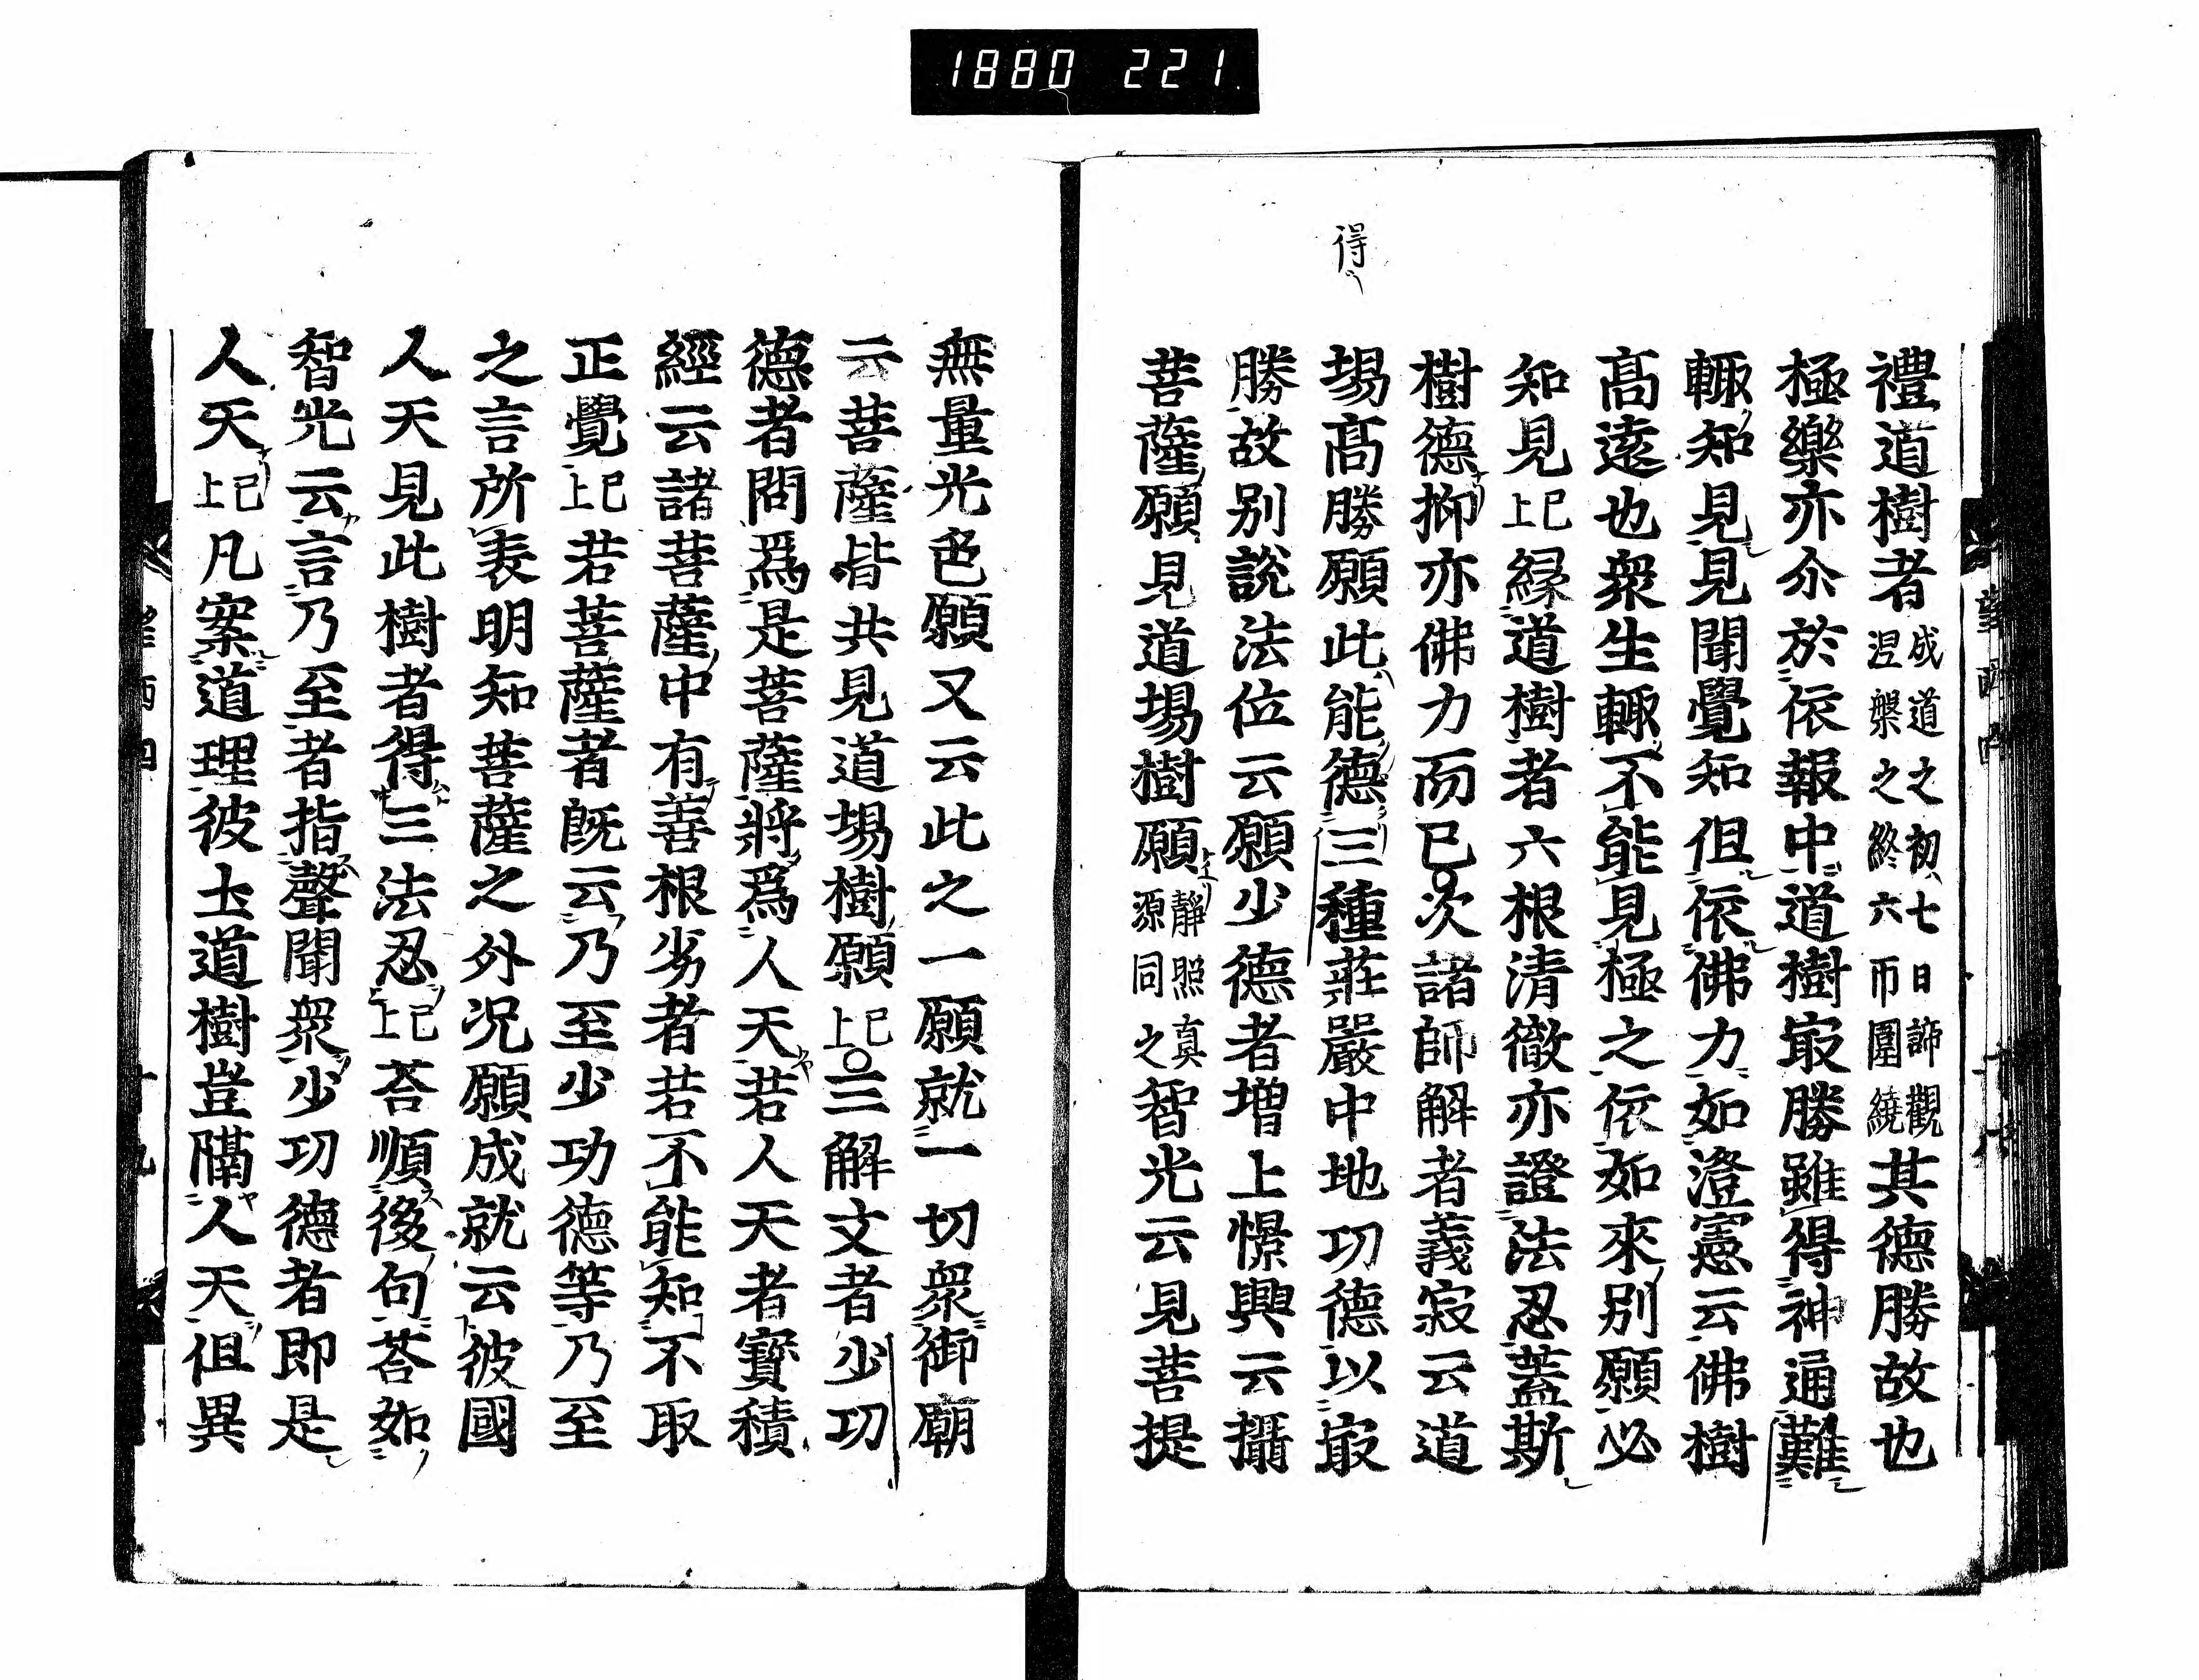 1880 221
得
禮道樹者成道之初七日諦觀涅槃之終六帀圍繞其德勝故也
極樂亦尒於依報中道樹㝡勝雖得神通難
輙知見見聞覺知但依佛力如澄憲云佛樹
髙遠也衆生輙不能見極之依如來别願必
知見已上緣道樹者六根清徹亦證法忍蓋斯
樹德抑亦佛力而已次諸師解者義寂云道
場髙勝願此能德三種莊嚴中地功德以㝡
勝故别説法位云願少德者增上憬興云攝
菩薩願見道場樹願靜照真源同之智光云見菩提
無量光色願又云此之一願就一切衆御廟
云菩薩皆共見道場樹願已上三解文者少功
德者問爲是菩薩將爲人天若人天者寶積
經云諸菩薩中有善根劣者若不能知不取
正覺已上若菩薩者既云乃至少功德等乃至
之言所表明知菩薩之外况願成就云彼國
人天見此樹者得三法忍已上荅順後句荅如
智光云言乃至者指聲聞衆少功德者即是
人天已上凡案道理彼土道樹豈隔人天但異